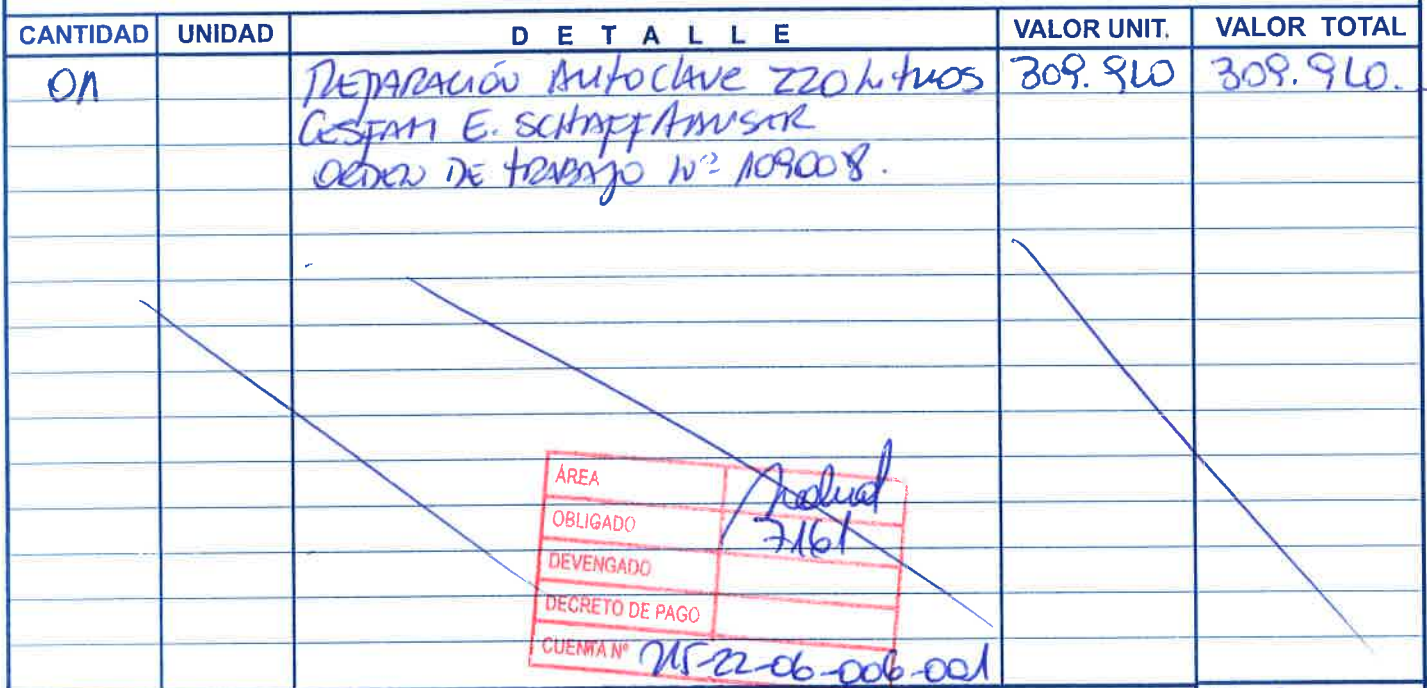 CANTIDAD UNIDAD DETALLE VALOR UNIT. VALOR TOTAL
01 REPARACIÓN AUTOCLAVE 220 LITROS 309.910 309.910.
CESFAM E. SCHAFFHAUSER
ORDEN DE TRABAJO Nº 109008.
ÁREA
OBLIGADO 7161
DEVENGADO
DECRETO DE PAGO
CUENTA Nº 215-22-06-006-001